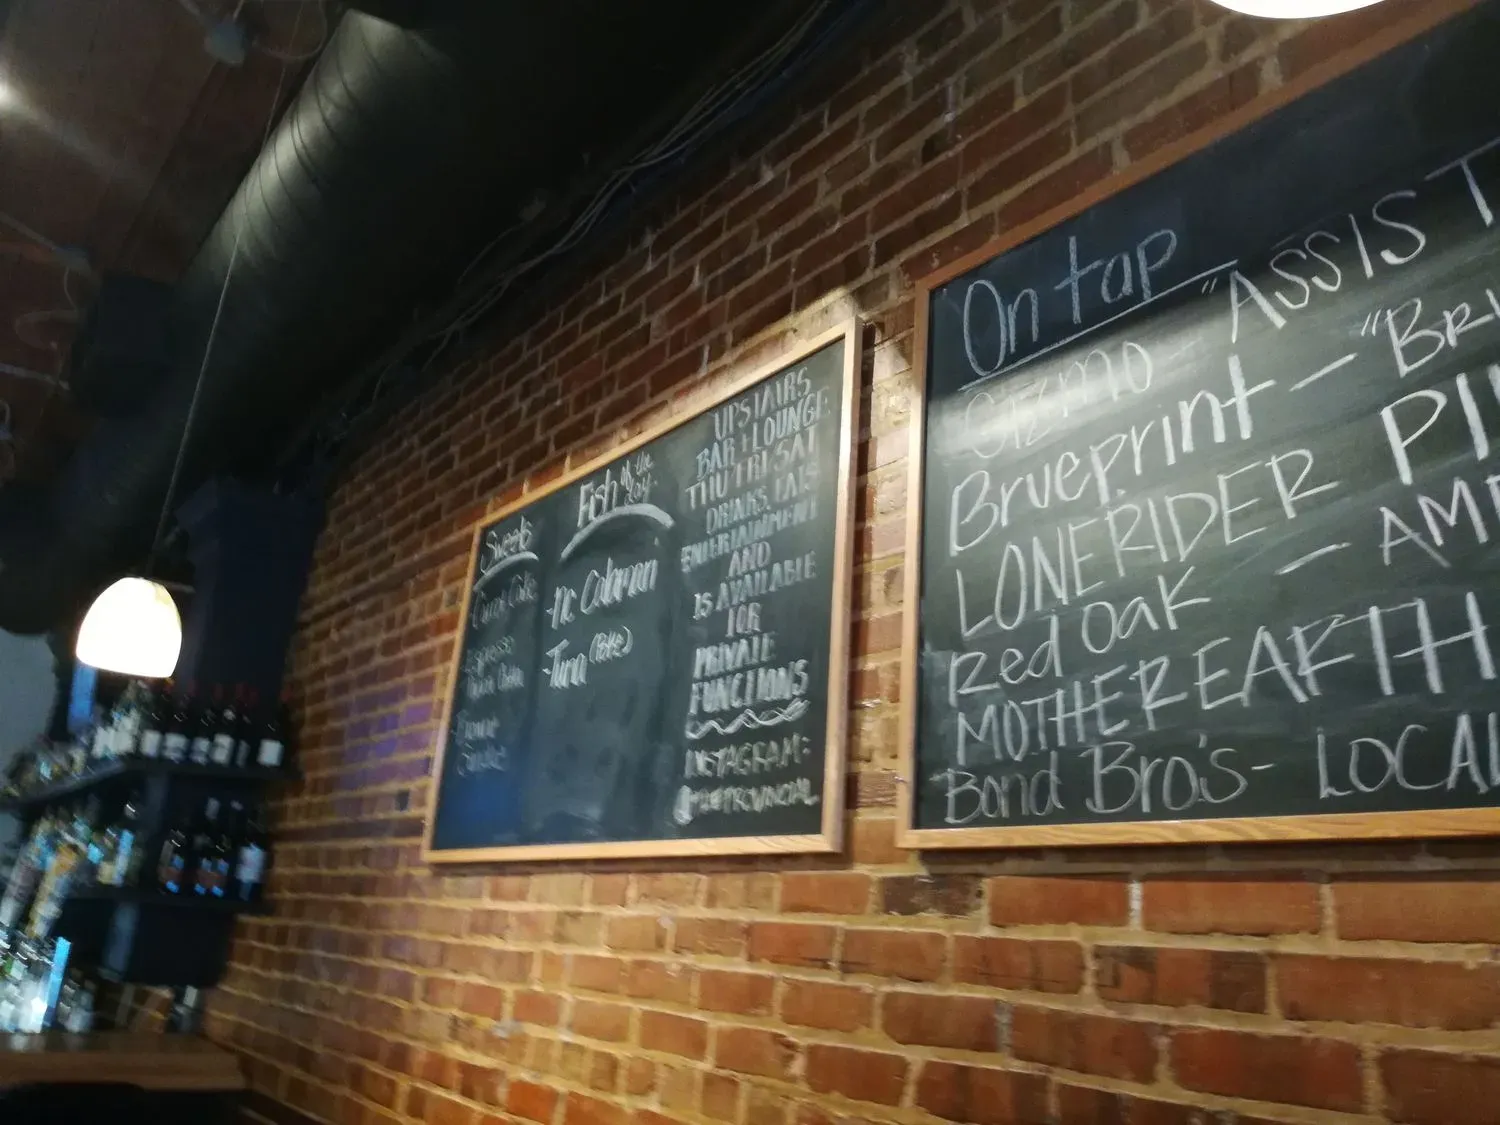 Sweets
Carrot Cake
Espresso
Panna Cotta
Fish of the
Day:
-NC Calamari
-Tuna (Poke)
UPSTAIRS
BAR + LOUNGE
THU FRI SAT
DRINKS, EATS
ENTERTAINMENT
AND
IS AVAILABLE
FOR
PRIVATE
FUNCTIONS
INSTAGRAM:
@THEPROVINCIAL
On tap
Gizmo - "ASSIST
Brueprint - "BRU
LONERIDER PI
Red Oak - AME
MOTHER EARTH
Bond Bro's - LOCAL